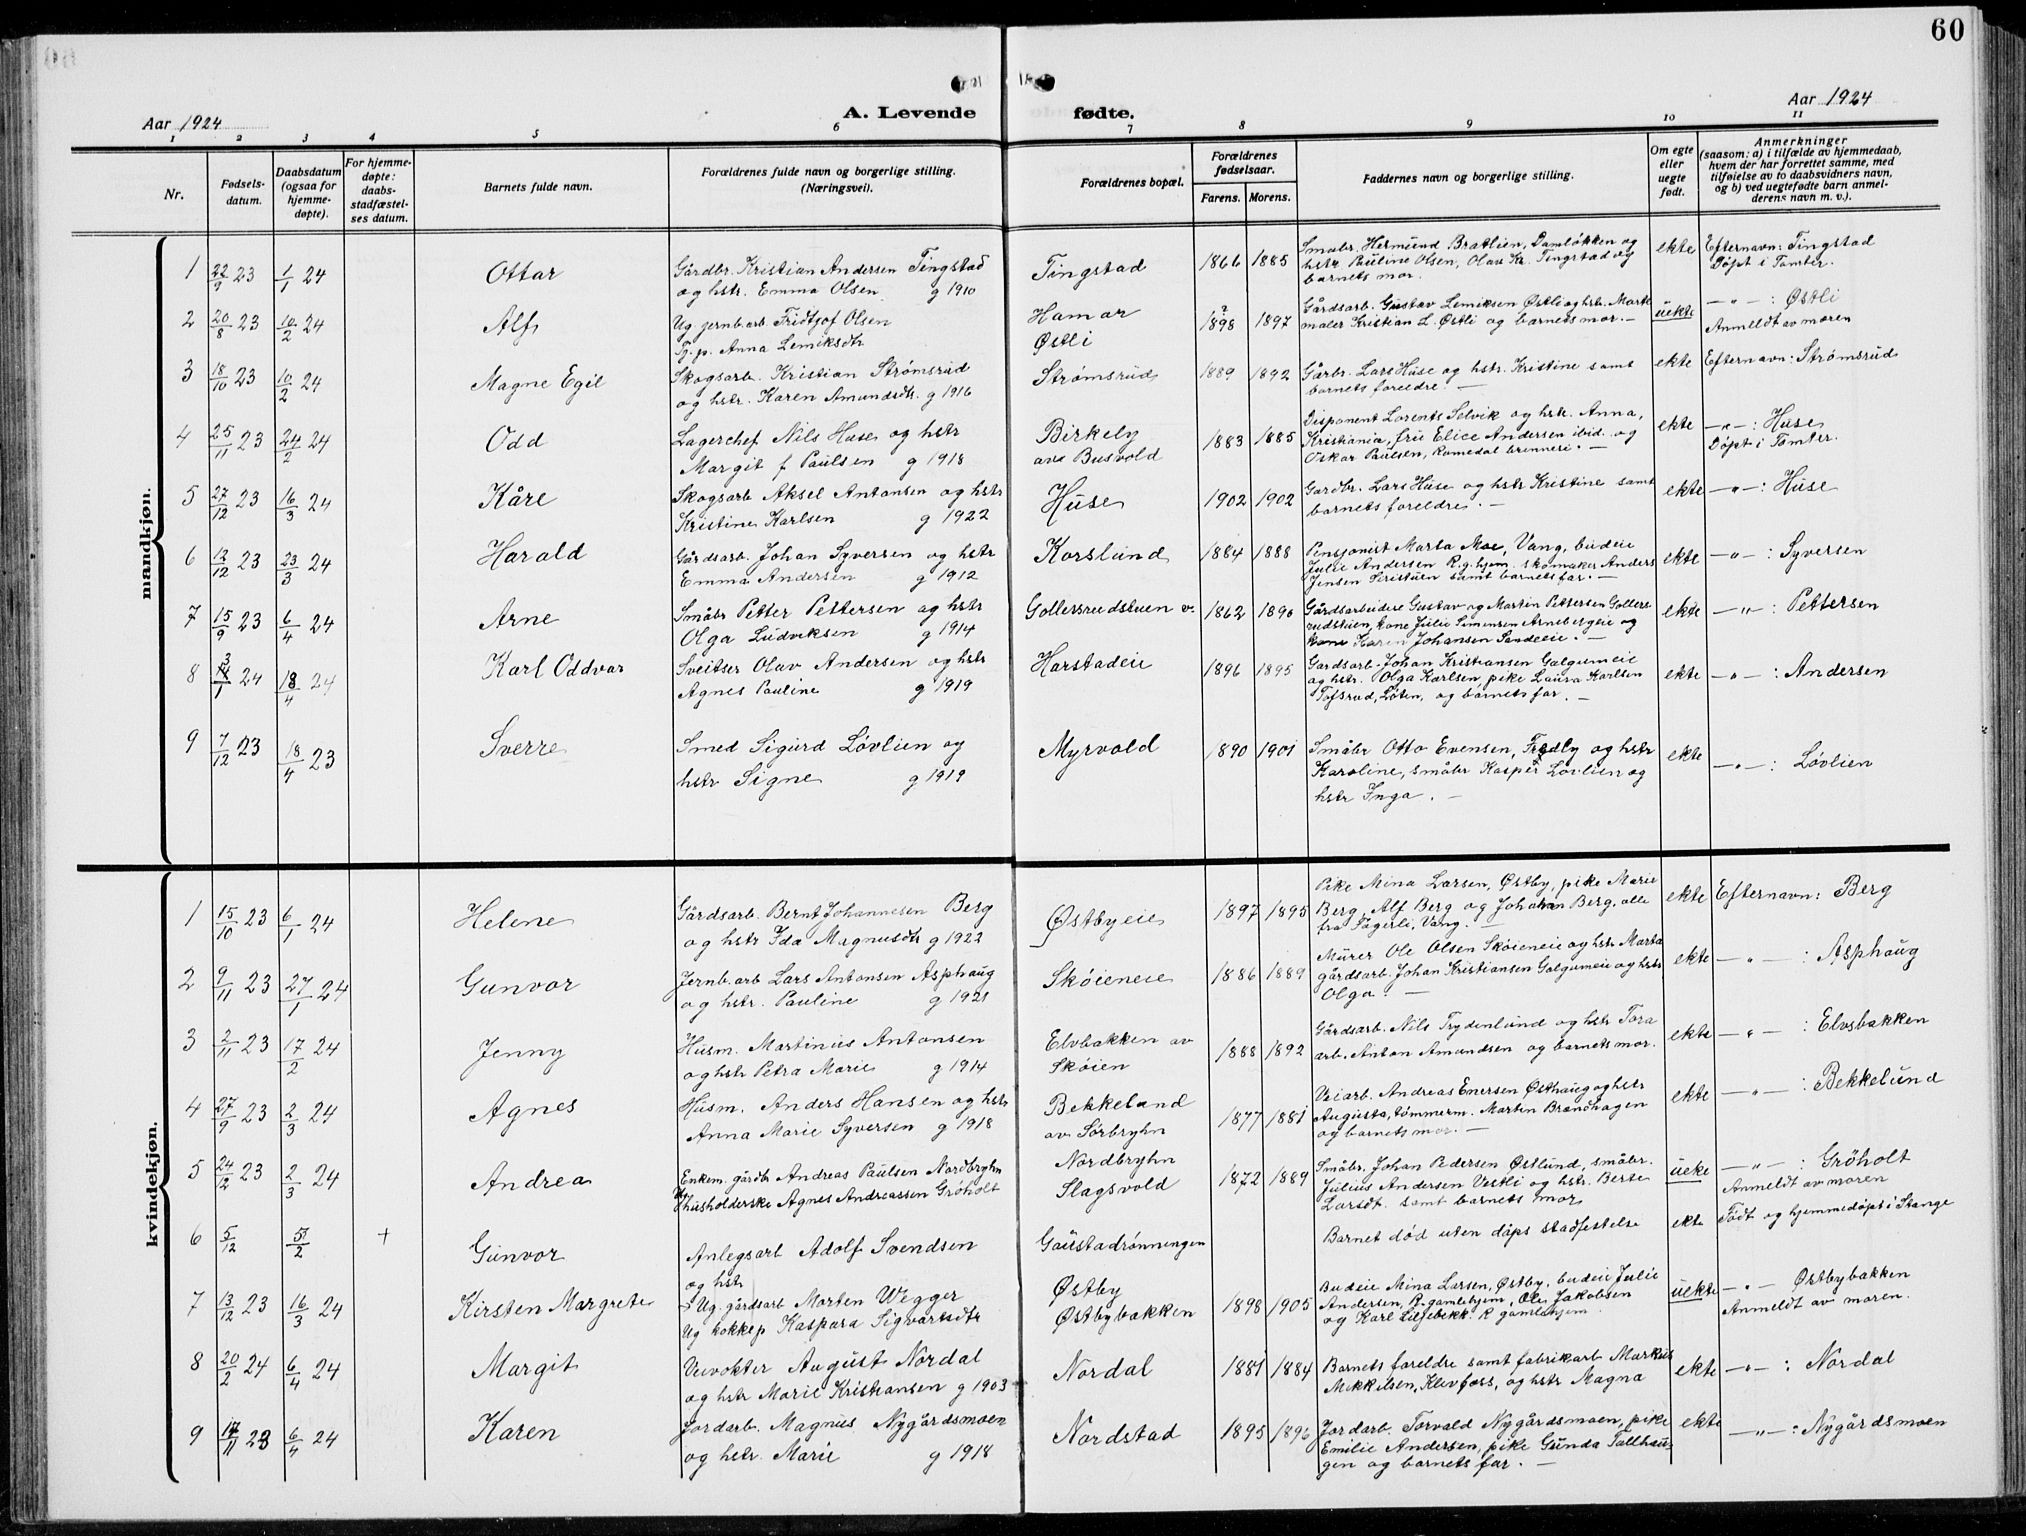 60
Aar 1924
A. Levende fødte.
Aar 1924
1 2 3 4 5 6 7 8 9 10 11
Nr.
Fødselsdatum.
Daabsdatum (ogsaa for hjemmedøpte).
For hjemmedøpte: daabsstadfæstelses datum.
Barnets fulde navn.
Forældrenes fulde navn og borgerlige stilling. (Næringsvei).
Forældrenes bopæl.
Forældrenes fødselsaar.
Farens. Morens.
Faddernes navn og borgerlige stilling.
Om egte eller uegte født.
Anmerkninger
(saasom: a) i tilfælde av hjemmedaab, hvem der har forrettet samme, med tilføielse av to daabsvidners navn, og b) ved uegtefødte barn anmelderens navn m. v.).
mandkjøn.
1 22/9 23 1/1 24 Ottar
Gårdbr. Kristian Andersen Tingstad
og hstr. Emma Olsen g 1910
Tingstad 1866 1885
Småbr. Hermund Bratlien, Damløkken og
hstr. Pauline Olsen, Olav Kr. Tingstad og
barnets mor.
ekte Efternavn: Tingstad
Døpt i Tomter.
2 20/8 23 10/2 24 Alf
Ug jernb.arb. Fridtjof Olsen
Tj.p. Anna Lemiksdtr
Hamar
Østli
? 1898 1897
Gårdsarb. Gustav Lemiksen Østli og hstr. Marte
maler Kristian L. Østli og barnets mor. —
uekte —"— : Østli
Anmeldt av moren
3 18/10 23 10/2 24 Magne Egil
Skogsarb. Kristian Strømsrud
og hstr. Karen Amundsdtr. g 1916
Strømsrud 1889 1892
Gårbr. Lars Huse og hstr. Kristine samt
barnets foreldre. —
ekte Efternavn: Strømsrud
4 25/11 23 24/2 24 Odd
Lagerchef Nils Huse og hstr
Margit f Paulsen g 1918
Birkely
av Busvold
1883 1885
Disponent Lorents Selvik og hstr. Anna,
Kristiania, fru Elice Andersen ibid. og
Oskar Paulsen, Romedal brenneri. —
ekte —"— : Huse
Døpt i Tomter.
5 27/12 23 16/3 24 Kåre
Skogsarb Aksel Antonsen og hstr
Kristine Karlsen g 1922
Huse 1902 1902
Gardbr. Lars Huse og hstr Kristine samt
barnets foreldre. —
ekte —"— : Huse
6 12/12 23 23/3 24 Harald
Gårdsarb. Johan Syversen og hstr
Emma Andersen g 1912
Korslund 1884 1888
Pensjonist Marta Moe, Vang, budeie
Julie Andersen R.g.hjem. skomaker Anders
Jensen Seristuen samt barnets far. —
ekte —"— : Syversen
7 15/9 23 6/4 24 Arne
Småbr Petter Pettersen og hstr
Olga Ludviksen g 1914
Gollersrudstuen v. 1862 1890
Gårdsarbeidere Gustav og Martin Pettersen Gollers
rudstuen, kone Julie Simensen Arnebergeie og
kone Karen Johansen Sandeeie. —
ekte —"— : Pettersen
8 3/1 24 18/4 24 Karl Oddvar
Sveitser Olav Andersen og hstr
Agnes Pauline g 1919
Harstadeie 1896 1895
Gardsarb. Johan Kristiansen Galgumeie
og hstr. Olga Karlsen, pike Laura Karlsen
Tofsrud, Løten, og barnets far. —
ekte —"— : Andersen
9 7/12 23 18/4 23 Sverre
Smed Sigurd Løvlien og
hstr Signe g 1919
Myrvold 1890 1901
Småbr Otto Evensen, Fredly og hstr
Karoline, småbr Kasper Løvlien og
hstr Inga. —
ekte —"— : Løvlien
kvindekjøn.
1 15/10 23 6/1 24 Helene
Gårdsarb. Bernt Johannesen Berg
og hstr Ida Magnusdtr g 1922
Østbyeie 1897 1895
Pike Mina Larsen, Østby, pike Marie
Berg, Alf Berg og Johan Berg, alle
fra Fagerli, Vang. —
ekte Efternavn: Berg
2 9/11 23 27/1 24 Gunvor
Jernb.arb Lars Antonsen Asphaug
og hstr. Pauline g 1921
Skøieneie 1886 1889
Murer Ole Olsen Skøieneie og hstr Marta
gårdsarb. Johan Kristiansen Galgumeie og hstr
Olga. —
ekte —"— : Asphaug
3 2/11 23 17/2 24 Jenny
Husm. Martinius Antonsen
og hstr Petra Marie g 1914
Elvbakken av
Skøien
1888 1892
Gårdsarb. Nils Trydenlund og hstr Tora
arb. Anton Amundsen og barnets mor.
ekte —"— : Elvsbakken
4 27/9 23 2/3 24 Agnes
Husm. Anders Hansen og hstr
Anna Marie Syversen g 1918
Bekkelund
av Sørbryhn
1877 1881
Veiarb. Andreas Enersen Østhaug og hstr
Augusta, tømmerm. Martin Brandhagen
og barnets mor. —
ekte —"— : Bekkelund
5 24/12 23 2/3 24 Andrea
Enkem. gårdbr Andreas Paulsen Nordbryhn
husholderske Agnes Andreassen Grøholt
Nordbryhn
Slagsvold
1872 1889
Småbr. Johan Pedersen Østlund, småbr.
Julius Andersen Vestli og hstr. Berte
Larsdt. samt barnets mor
ueke —"— : Grøholt
Anmeldt av moren
6 5/12 5/2 + Gunvor
Anlegsarb Adolf Svendsen
og hstr
Gaustadrønningen
Barnet død uten dåps stadfestelse
ekte Født og hjemmedøpt i Stange
7 13/12 23 16/3 24 Kirsten Margrete
Ug. gårdsarb Morten Wegger
Ug kokkep Kaspara Sigvartsdtr
Østby
Østbybakken
1898 1905
Budeie Mina Larsen, Østby, budeie Julie
Andersen, R. gamlehjem, Ole Jakobsen
og Karl Lillebekk. R gamlehjem
uekte —"— Østbybakken
Anmeldt av moren.
8 20/2 24 6/4 24 Margit
Veivokter August Nordal
og hstr Marie Kristiansen g 1903
Nordal 1881 1884
Barnets foreldre samt fabrikarb Markus
Mikkelsen, Klevfoss, og hstr Magna
ekte —"— : Nordal
9 17/11 23 6/4 24 Karen
Jordarb. Magnus Nygårdsmoen
og hstr. Marie g 1918
Nordstad 1895 1896
Jordarb. Torvald Nygårdsmoen, pike
Emilie Andersen, pike Gunda Tallhau
gen og barnets far. —
ekte —"— : Nygårdsmoen